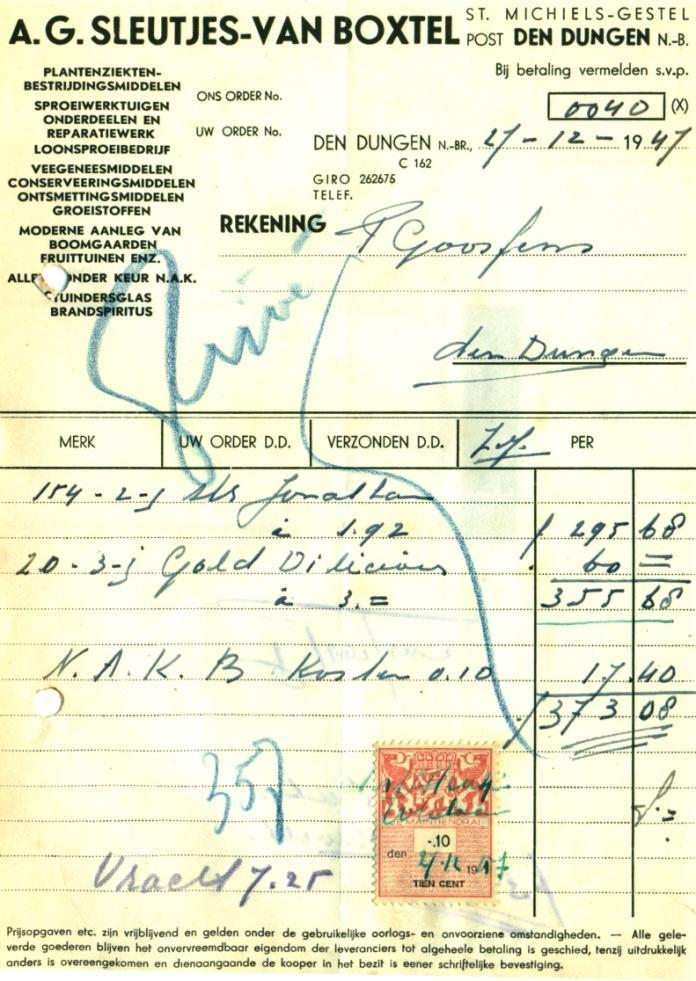 A. G. SLEUTJES-VAN BOXTEL
ST. MICHIELS-GESTEL
POST DEN DUNGEN N.-B.
Bij betaling vermelden s.v.p.
0040 (X)
PLANTENZIEKTEN-
BESTRIJDINGSMIDDELEN
SPROEIWERKTUIGEN
ONDERDEELEN EN
REPARATIEWERK
LOONSPROEIBEDRIJF
VEEGENEESMIDDELEN
CONSERVEERINGSMIDDELEN
ONTSMETTINGSMIDDELEN
GROEISTOFFEN
MODERNE AANLEG VAN
BOOMGAARDEN
FRUITTUINEN ENZ.
ALLES ONDER KEUR N.A.K.
TUINDERSGLAS
BRANDSPIRITUS
ONS ORDER No.
UW ORDER No.
DEN DUNGEN N.-BR., 27-12-1947
C 162
GIRO 262675
TELEF.
REKENING P Goossens
den Dungen
MERK UW ORDER D.D. VERZONDEN D.D. PER
154-2-j Jonathan
à 1.92 f 295 68
20-3-j Gold Dilicious 60 =
à 3.= 355 68
N.A.K.B Kosten 0.10 17.40
f 373 08
357
-.10
den 27.12 1947
TIEN CENT
f.=
Vracht 7.25
Prijsopgaven etc. zijn vrijblijvend en gelden onder de gebruikelijke oorlogs- en onvoorziene omstandigheden. — Alle gele-
verde goederen blijven het onvervreemdbaar eigendom der leveranciers tot algeheele betaling is geschied, tenzij uitdrukkelijk
anders is overeengekomen en dienaangaande de kooper in het bezit is eener schriftelijke bevestiging.